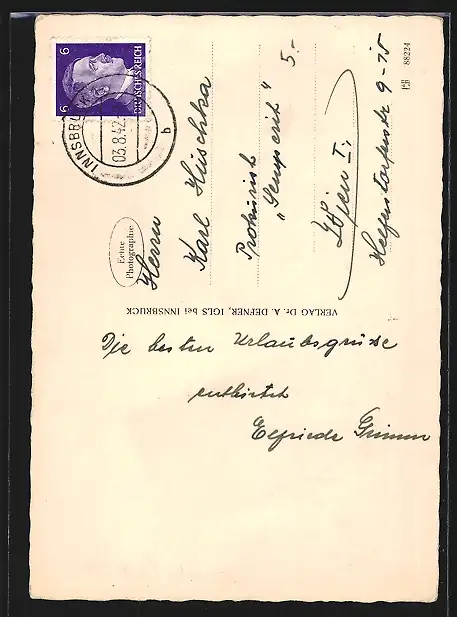 6 6
DEUTSCHES REICH
INNSBRU
03.8.42.
b
88224
Echte
Photographie
Herrn
Karl Huschka
Prokurist
„Semperit"
5.-
Wien I.
Helferstorferstr 9-15
VERLAG Dr. A. DEFNER, IGLS bei INNSBRUCK
Die besten Urlaubsgrüsse
entbietet
Elfriede Grimm